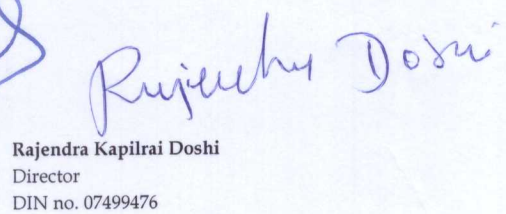 Rajendra Doshi
Rajendra Kapilrai Doshi
Director
DIN no. 07499476